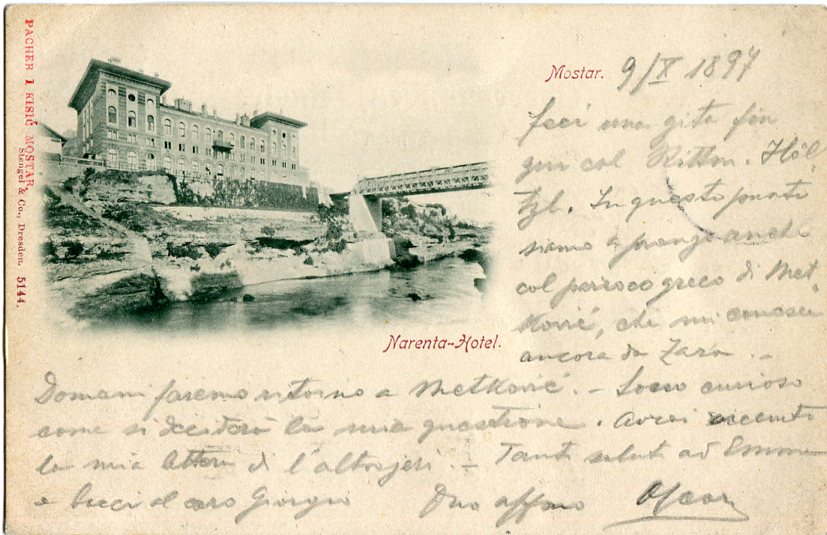 PACHER I KISIĆ MOSTAR
Stengel & Co., Dresden. 5144.
Mostar. 9/X 1897
Narenta-Hotel.
feci una gita fin
qui col Rittm. Höl
In questo punto
siamo a pranzo anche
col parroco greco di Met-
ković, che mi conosce
ancora da Zara. -
Domani faremo ritorno a Metković. - Sono curioso
come si deciderà la mia questione. Avrai
la mia lettera di l'altrojeri. - Tanti saluti ad Emma
e bacci al caro Giorgio Tuo affmo Oscar